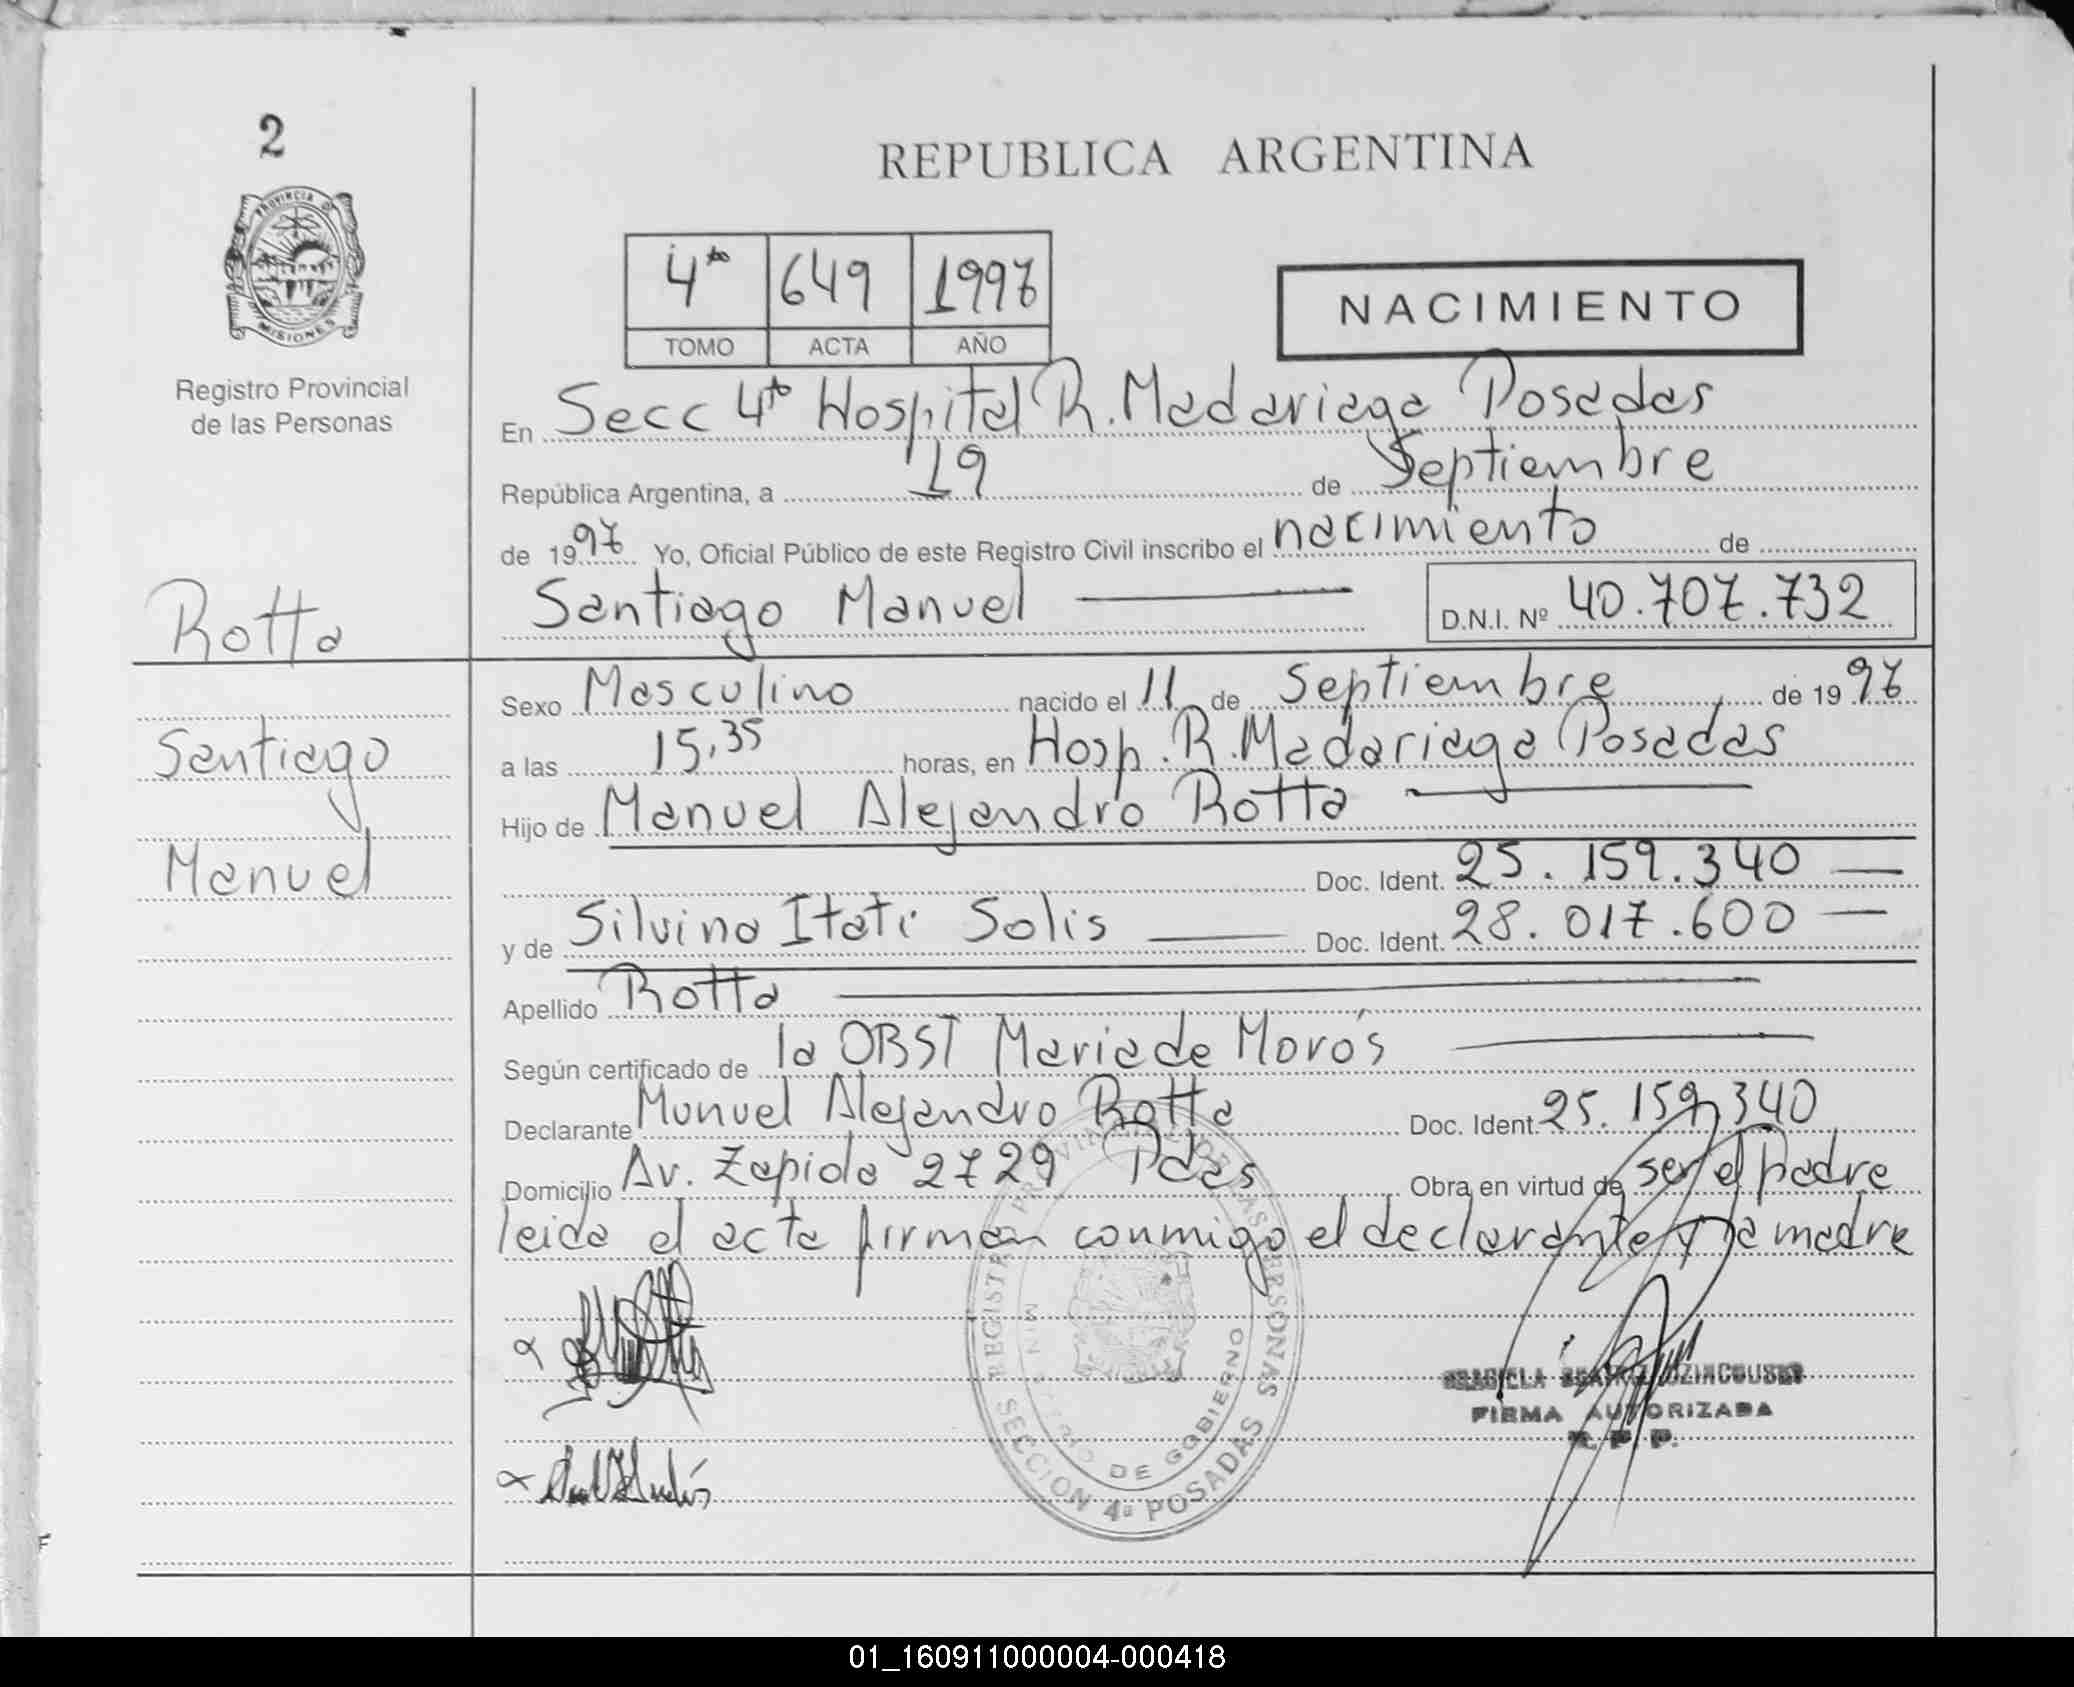 2
REPUBLICA ARGENTINA
PROVINCIA DE
MISIONES
Registro Provincial
de las Personas
4to 649 1997
TOMO ACTA AÑO
NACIMIENTO
En Secc 4to Hospital R. Madariaga Posadas
República Argentina, a 19 de Septiembre
de 1997 Yo, Oficial Público de este Registro Civil inscribo el nacimiento de
Santiago Manuel D.N.I. Nº 40.707.732
Rotta
Santiago
Manuel
Sexo Masculino nacido el 11 de Septiembre de 1997
a las 15,35 horas, en Hosp. R. Madariaga Posadas
Hijo de Manuel Alejandro Rotta
Doc. Ident. 25.159.340
y de Silvina Itati Solis Doc. Ident. 28.017.600
Apellido Rotta
Según certificado de la OBST Maria de Morós
Declarante Manuel Alejandro Rotta Doc. Ident. 25.159.340
Domicilio Av. Zapiola 2729 Pdas Obra en virtud de ser el padre
leida el acta firman conmigo el declarante y la madre
REGISTRO PROVINCIAL DE LAS PERSONAS
MINISTERIO DE GOBIERNO
SECCION 4ª POSADAS
GRACIELA BEATRIZ
FIRMA AUTORIZADA
R. P. P.
01_160911000004-000418